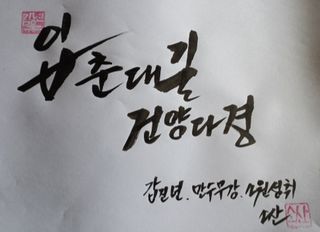 입춘대길
건양다경
갑진년. 만수무강. 소원성취